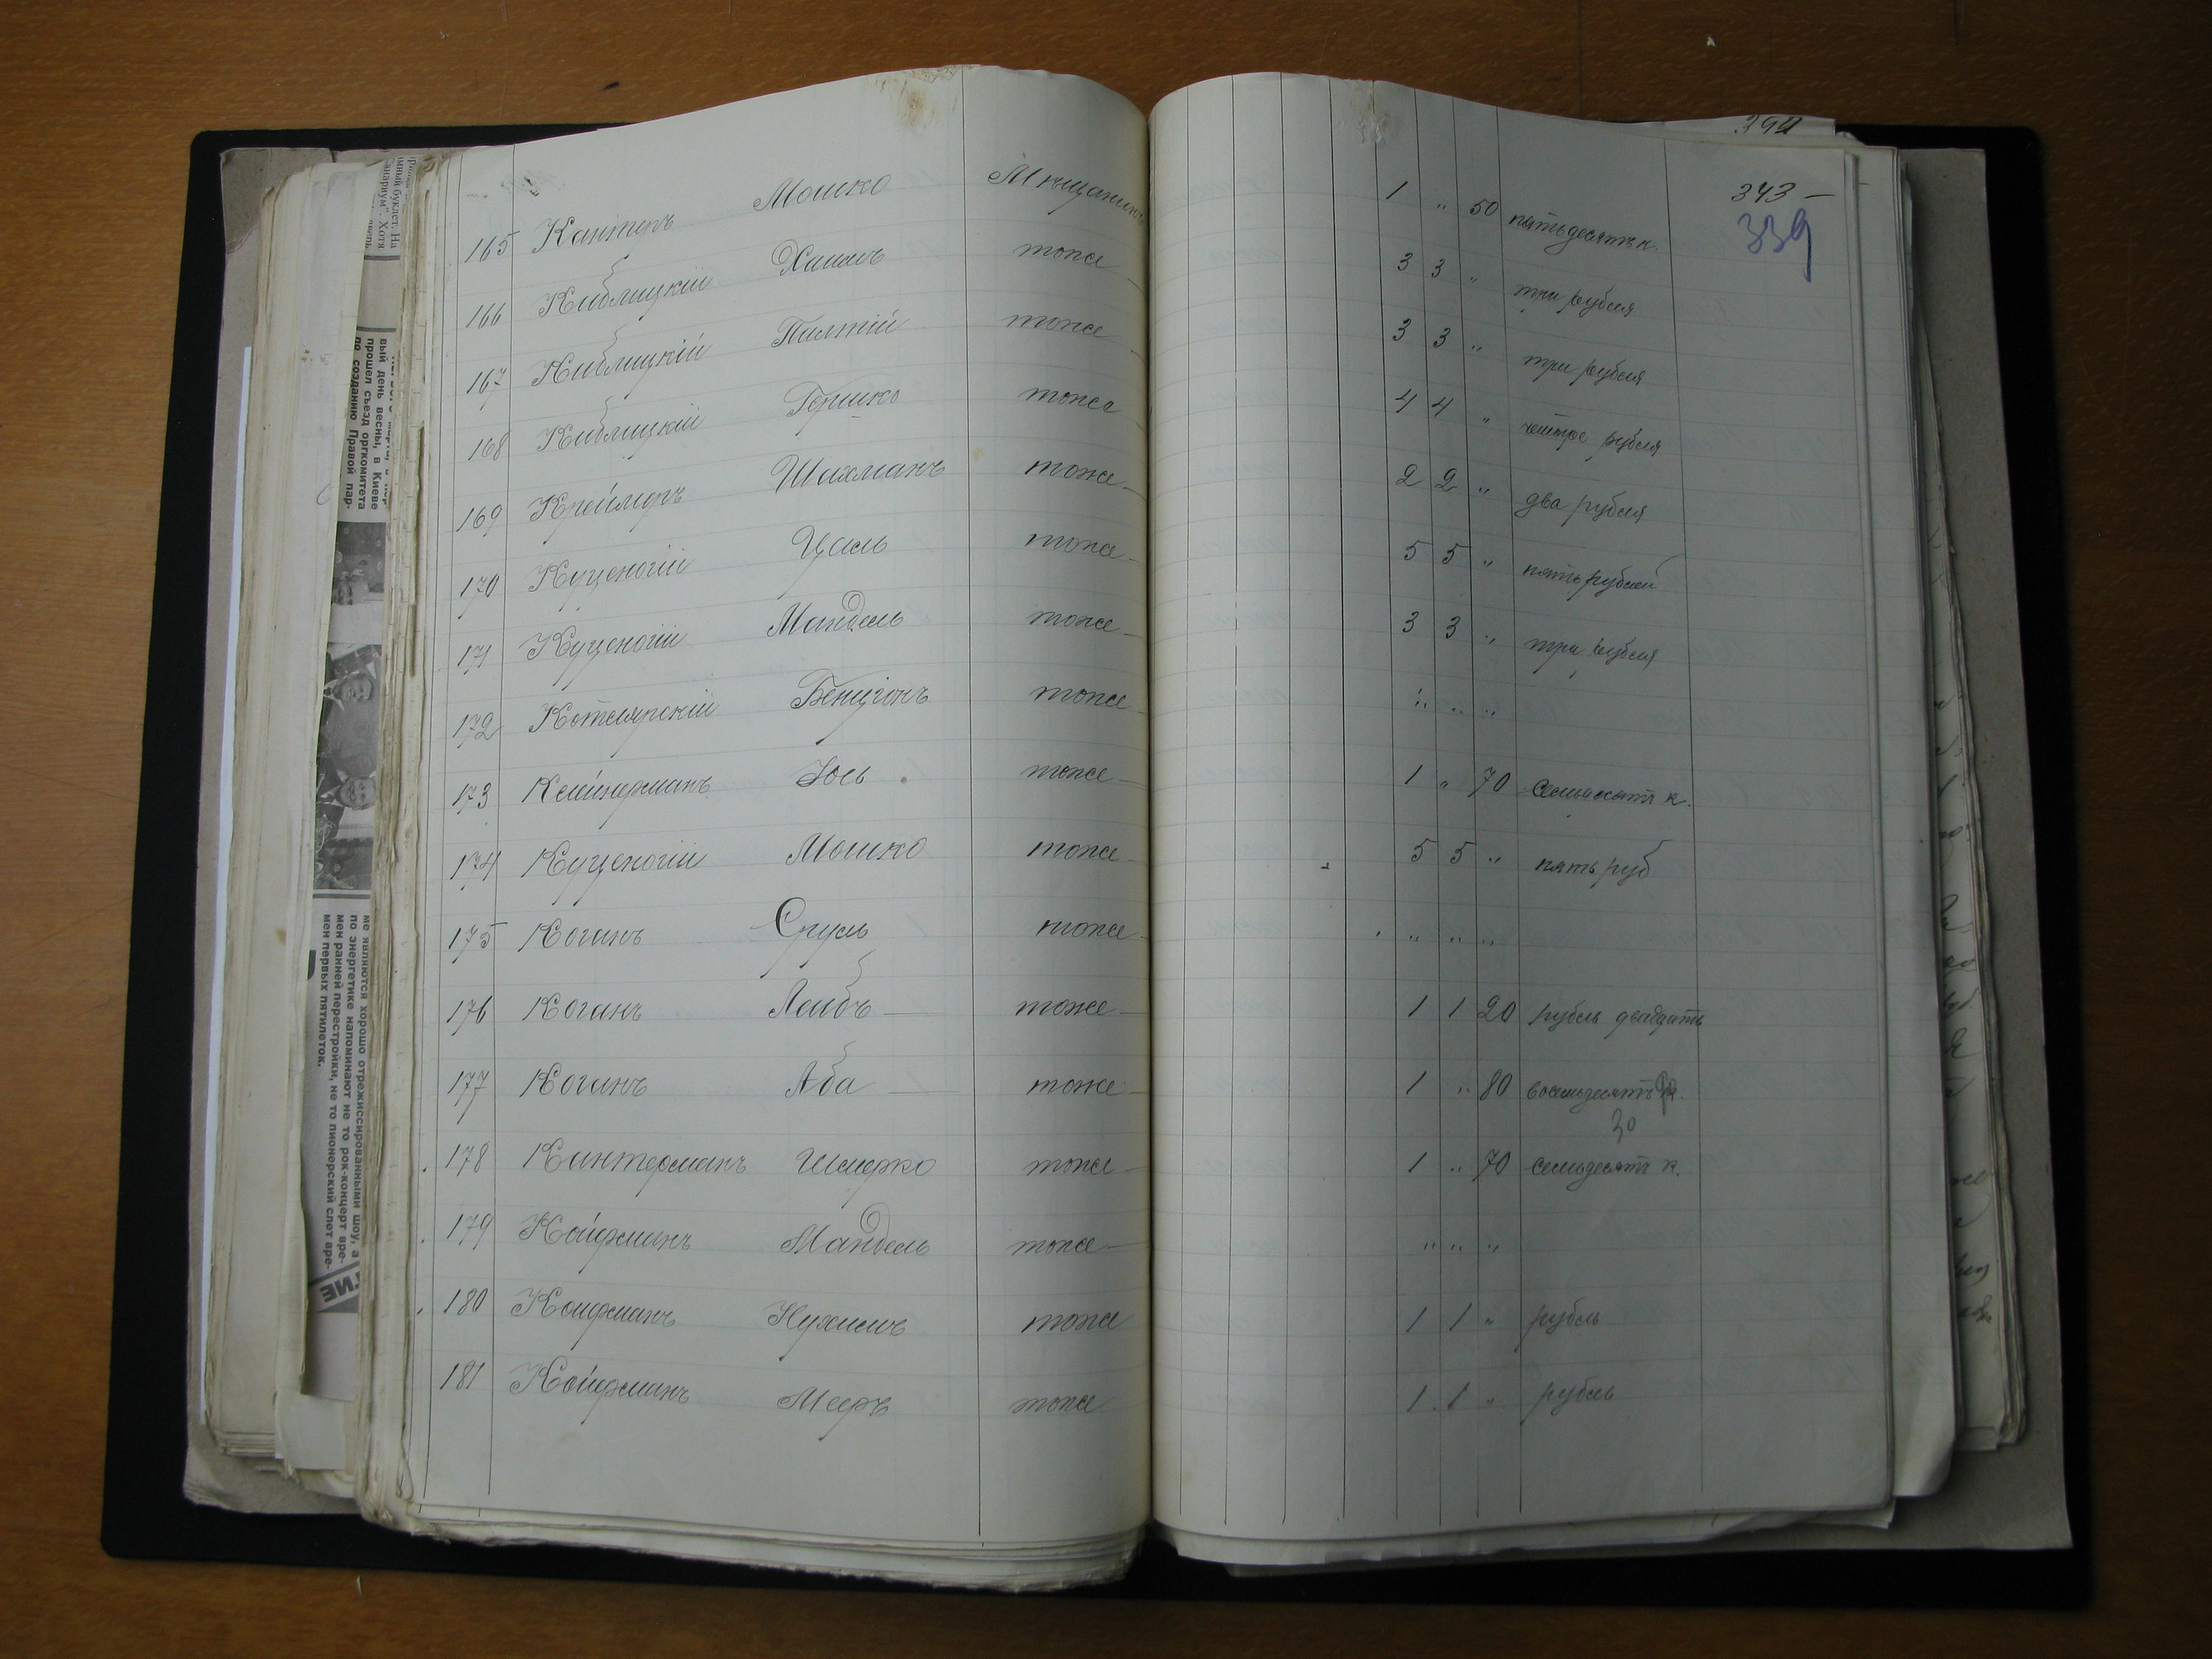 394
343 –
339
165 Канторъ Мошко Мѣщанинъ 1 " 50 пятьдесятъ к.
166 Киблицкій Хаимъ тоже 3 3 " три рубля
167 Киблицкій Палтій тоже 3 3 " три рубля
168 Киблицкій Гершко тоже 4 4 " четыре рубля
169 Креймеръ Шахманъ тоже 2 2 " два рубля
170 Куценогій Цаль тоже 5 5 " пять рублей
171 Куценогій Мандель тоже 3 3 " три рубля
172 Котлярскій Бенціонъ тоже " " "
173 Клейнерманъ Іось тоже 1 " 70 семьдесятъ к.
174 Куценогій Мошко тоже 5 5 " пять руб
175 Коганъ Сруль тоже " " "
176 Коганъ Лейбъ тоже 1 1 20 рубль двадцать
177 Коганъ Аба тоже 1 " 80 восемьдесятъ к.
30
178 Кантерманъ Шмерко тоже 1 " 70 семьдесятъ к.
179 Койфманъ Мандель тоже " " "
180 Койфманъ Нухимъ тоже 1 1 " рубль
181 Койфманъ Мееръ тоже 1 1 " рубль
вый день весны, в Киеве
прошел съезд оргкомитета
по созданию Правой пар-
ме являются хорошо отрежиссированными шоу, а
по энергетике напоминают не то рок-концерт вре-
мен ранней перестройки, не то пионерский слет вре-
мен первых пятилеток.